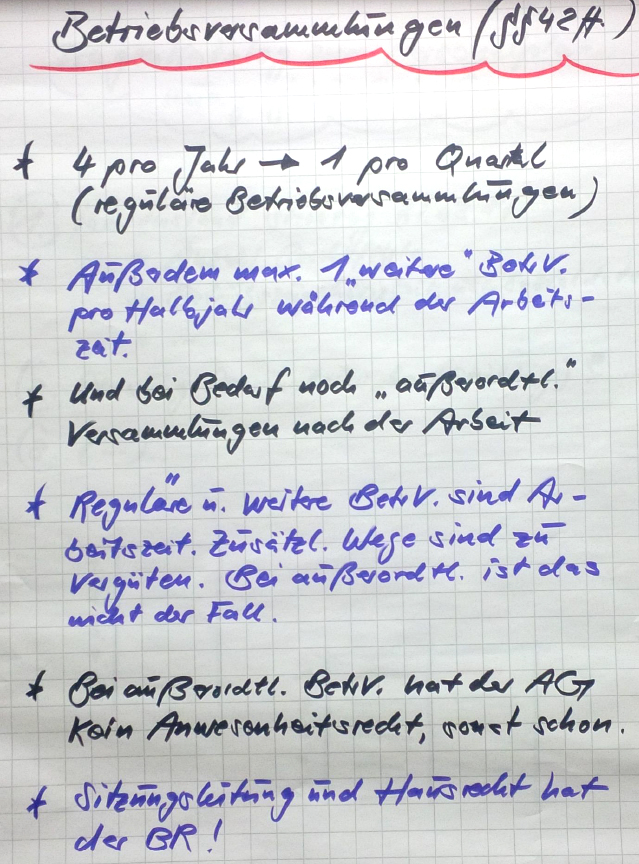 Betriebsversammlungen (§§42ff.
* 4 pro Jahr → 1 pro Quartal
(reguläre Betriebsversammlungen)
* Außerdem max. 1 „weitere" BetrV.
pro Halbjahr während der Arbeits-
zeit.
* Und bei Bedarf noch „außerordtl."
Versammlungen nach der Arbeit
* Reguläre u. weitere BetrV. sind Ar-
beitszeit. Zusätzl. Wege sind zu
vergüten. Bei außerordtl. ist das
nicht der Fall.
* Bei außerordtl. BetrV. hat der AG
kein Anwesenheitsrecht, sonst schon.
* Sitzungsleitung und Hausrecht hat
der BR!